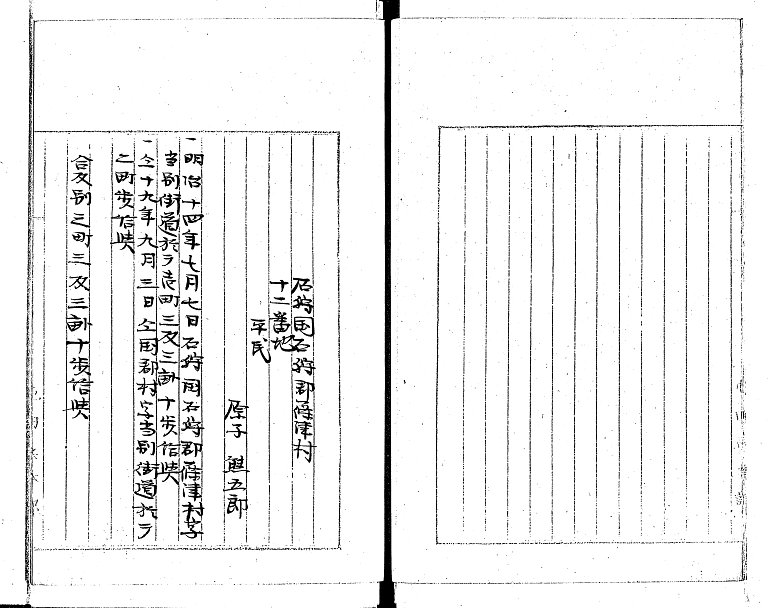 石狩国石狩郡篠津村
十二番地
平民
原子 熊五郎
一明治十四年七月七日石狩国石狩郡篠津村字
当別街道於テ壱町三反三畝十歩借貸
一仝十九年九月三日仝国郡村字当別街道於テ
二町歩借貸
合反別三町三反三畝十歩借貸